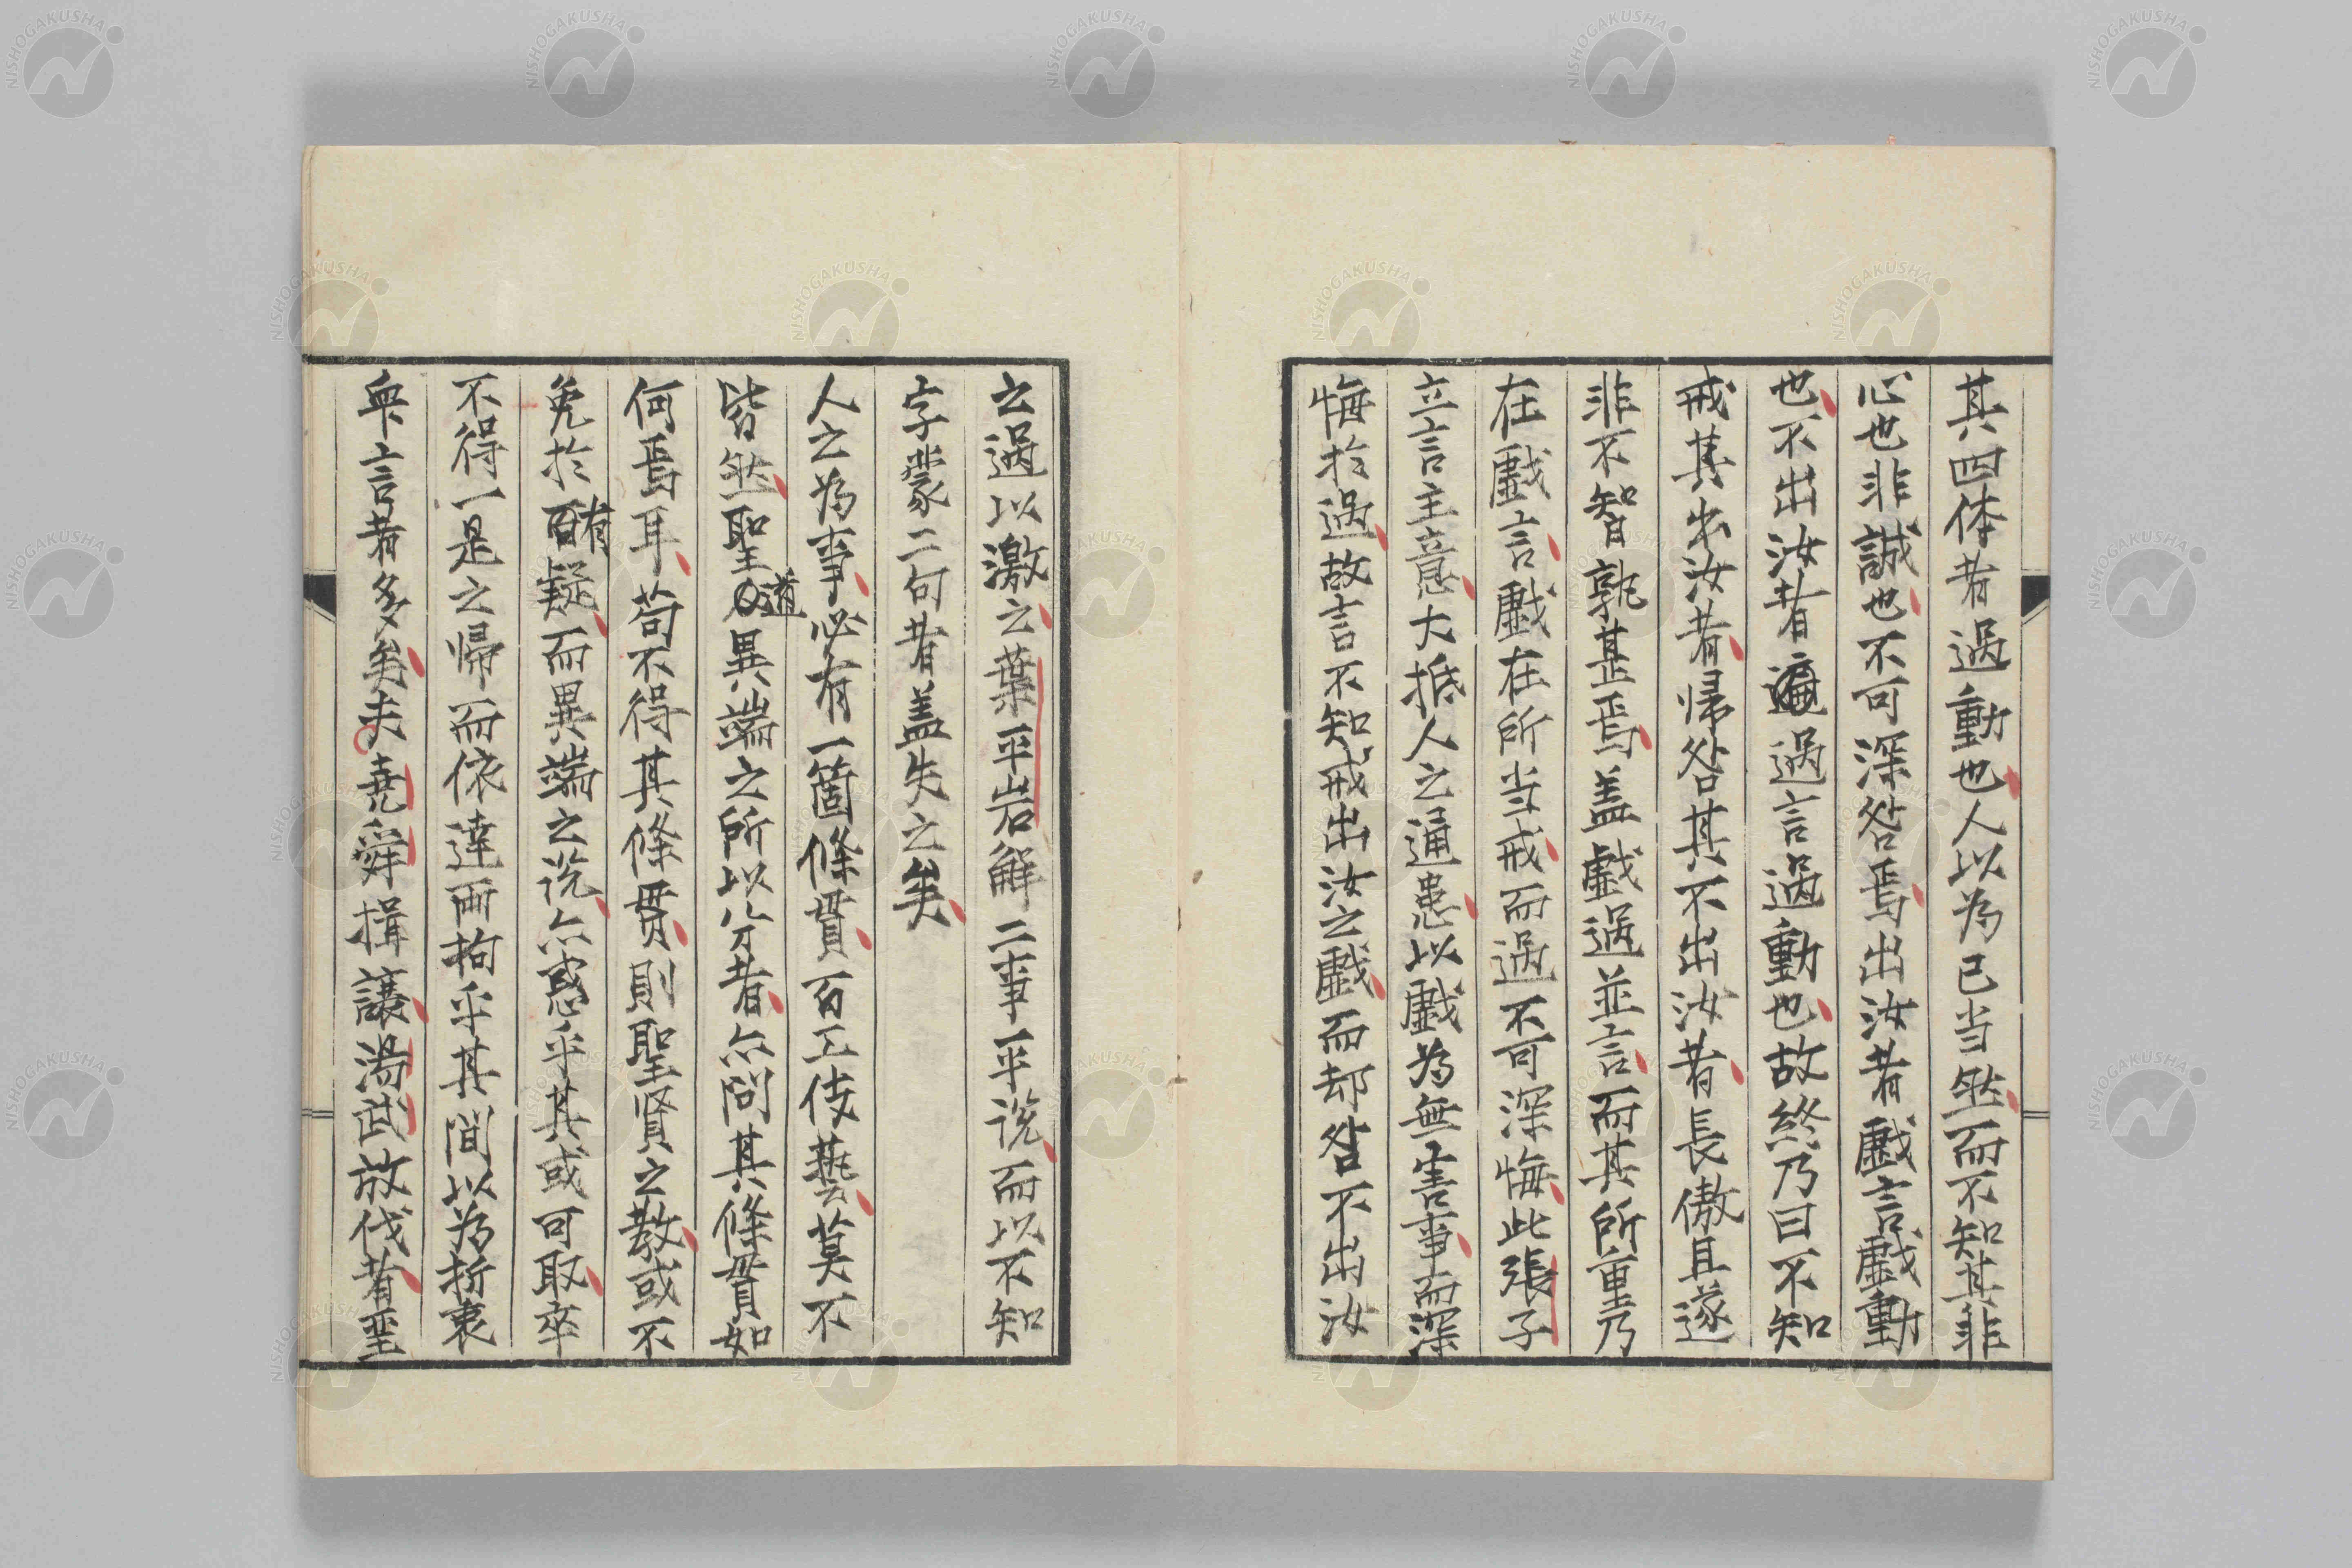 其四体者過動也人以為已当然而不知其非
心也非誠也不可深咎焉出汝者戯言戯動
也不出汝者過言過動也故終乃曰不知
戒其出汝者帰咎其不出汝者長傲且遂
非不智孰甚焉盖戯過並言而其所重乃
在戯言戯在所当戒而過不可深悔此張子
立言主意大抵人之通患以戯為無害事而深
悔於過故言不知戒出汝之戯而却咎不出汝
之過以激之葉平岩解二事一平説而以不知
字蒙二句者盖失之矣
人之為事必有一箇條貫百工伎藝莫不
皆然聖道異端之所以分者亦問其條貫如
何焉耳苟不得其條貫則聖賢之教或不
免於有疑而異端之説亦惑乎其或可取卒
不得一是之帰而依違両拘乎其間以為折衷
無言者多矣夫堯舜揖讓湯武放伐者聖
NISHOGAKUSHA